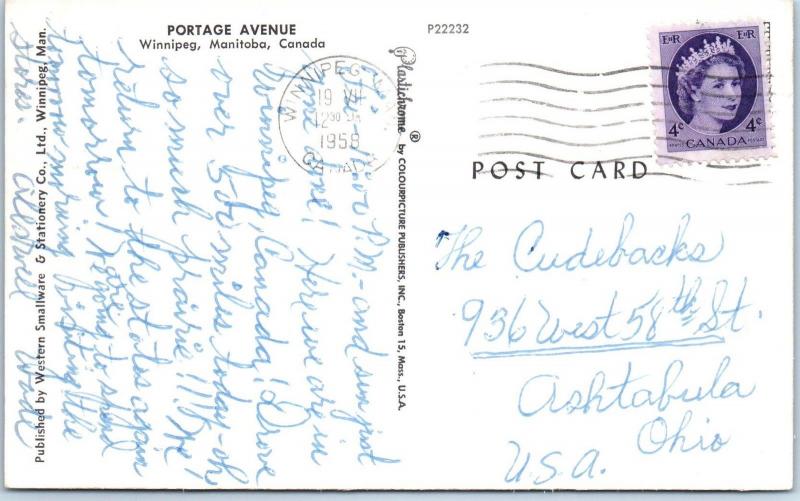 PORTAGE AVENUE
Winnipeg, Manitoba, Canada
P22232
P.M. - and sun just
gone! Here we are in
Winnipeg, Canada! Drove
over 500 miles today - oh
so much prairie!!!
return to the states again
tomorrow! going to spend
tomorrow morning visiting the
stores.
Published by Western Smallware & Stationery Co., Ltd., Winnipeg, Man.
Plastichrome ® by COLOURPICTURE PUBLISHERS, INC., Boston 15, Mass., U.S.A.
WINNIPEG
19 VII
12 30
1958
CANADA
EIIR EIIR
4¢ 4¢
CANADA
POSTES POSTAGE
POST CARD
The Cudebacks
936 West 58th St.
Ashtabula
Ohio
U.S.A.